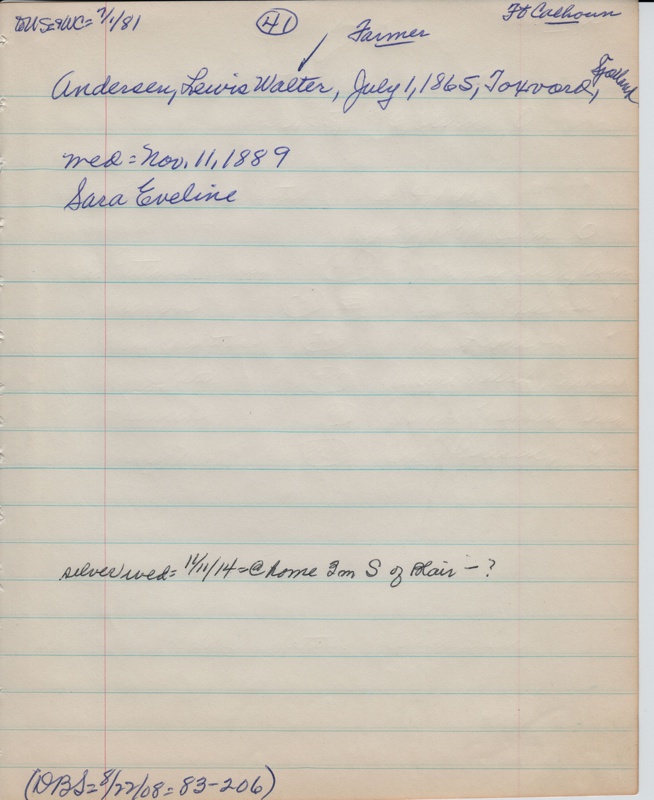 toUS=&WC= 7/1/81 (41) Farmer Ft Calhoun
Andersen, Lewis Walter, July 1, 1865, Toxvord, Sjaelland
med = Nov. 11, 1889
Sara Eveline
silver wed = 11/11/14 = @ home 3m S of Blair - ?
(DBS = 8/22/08 = 83-206)